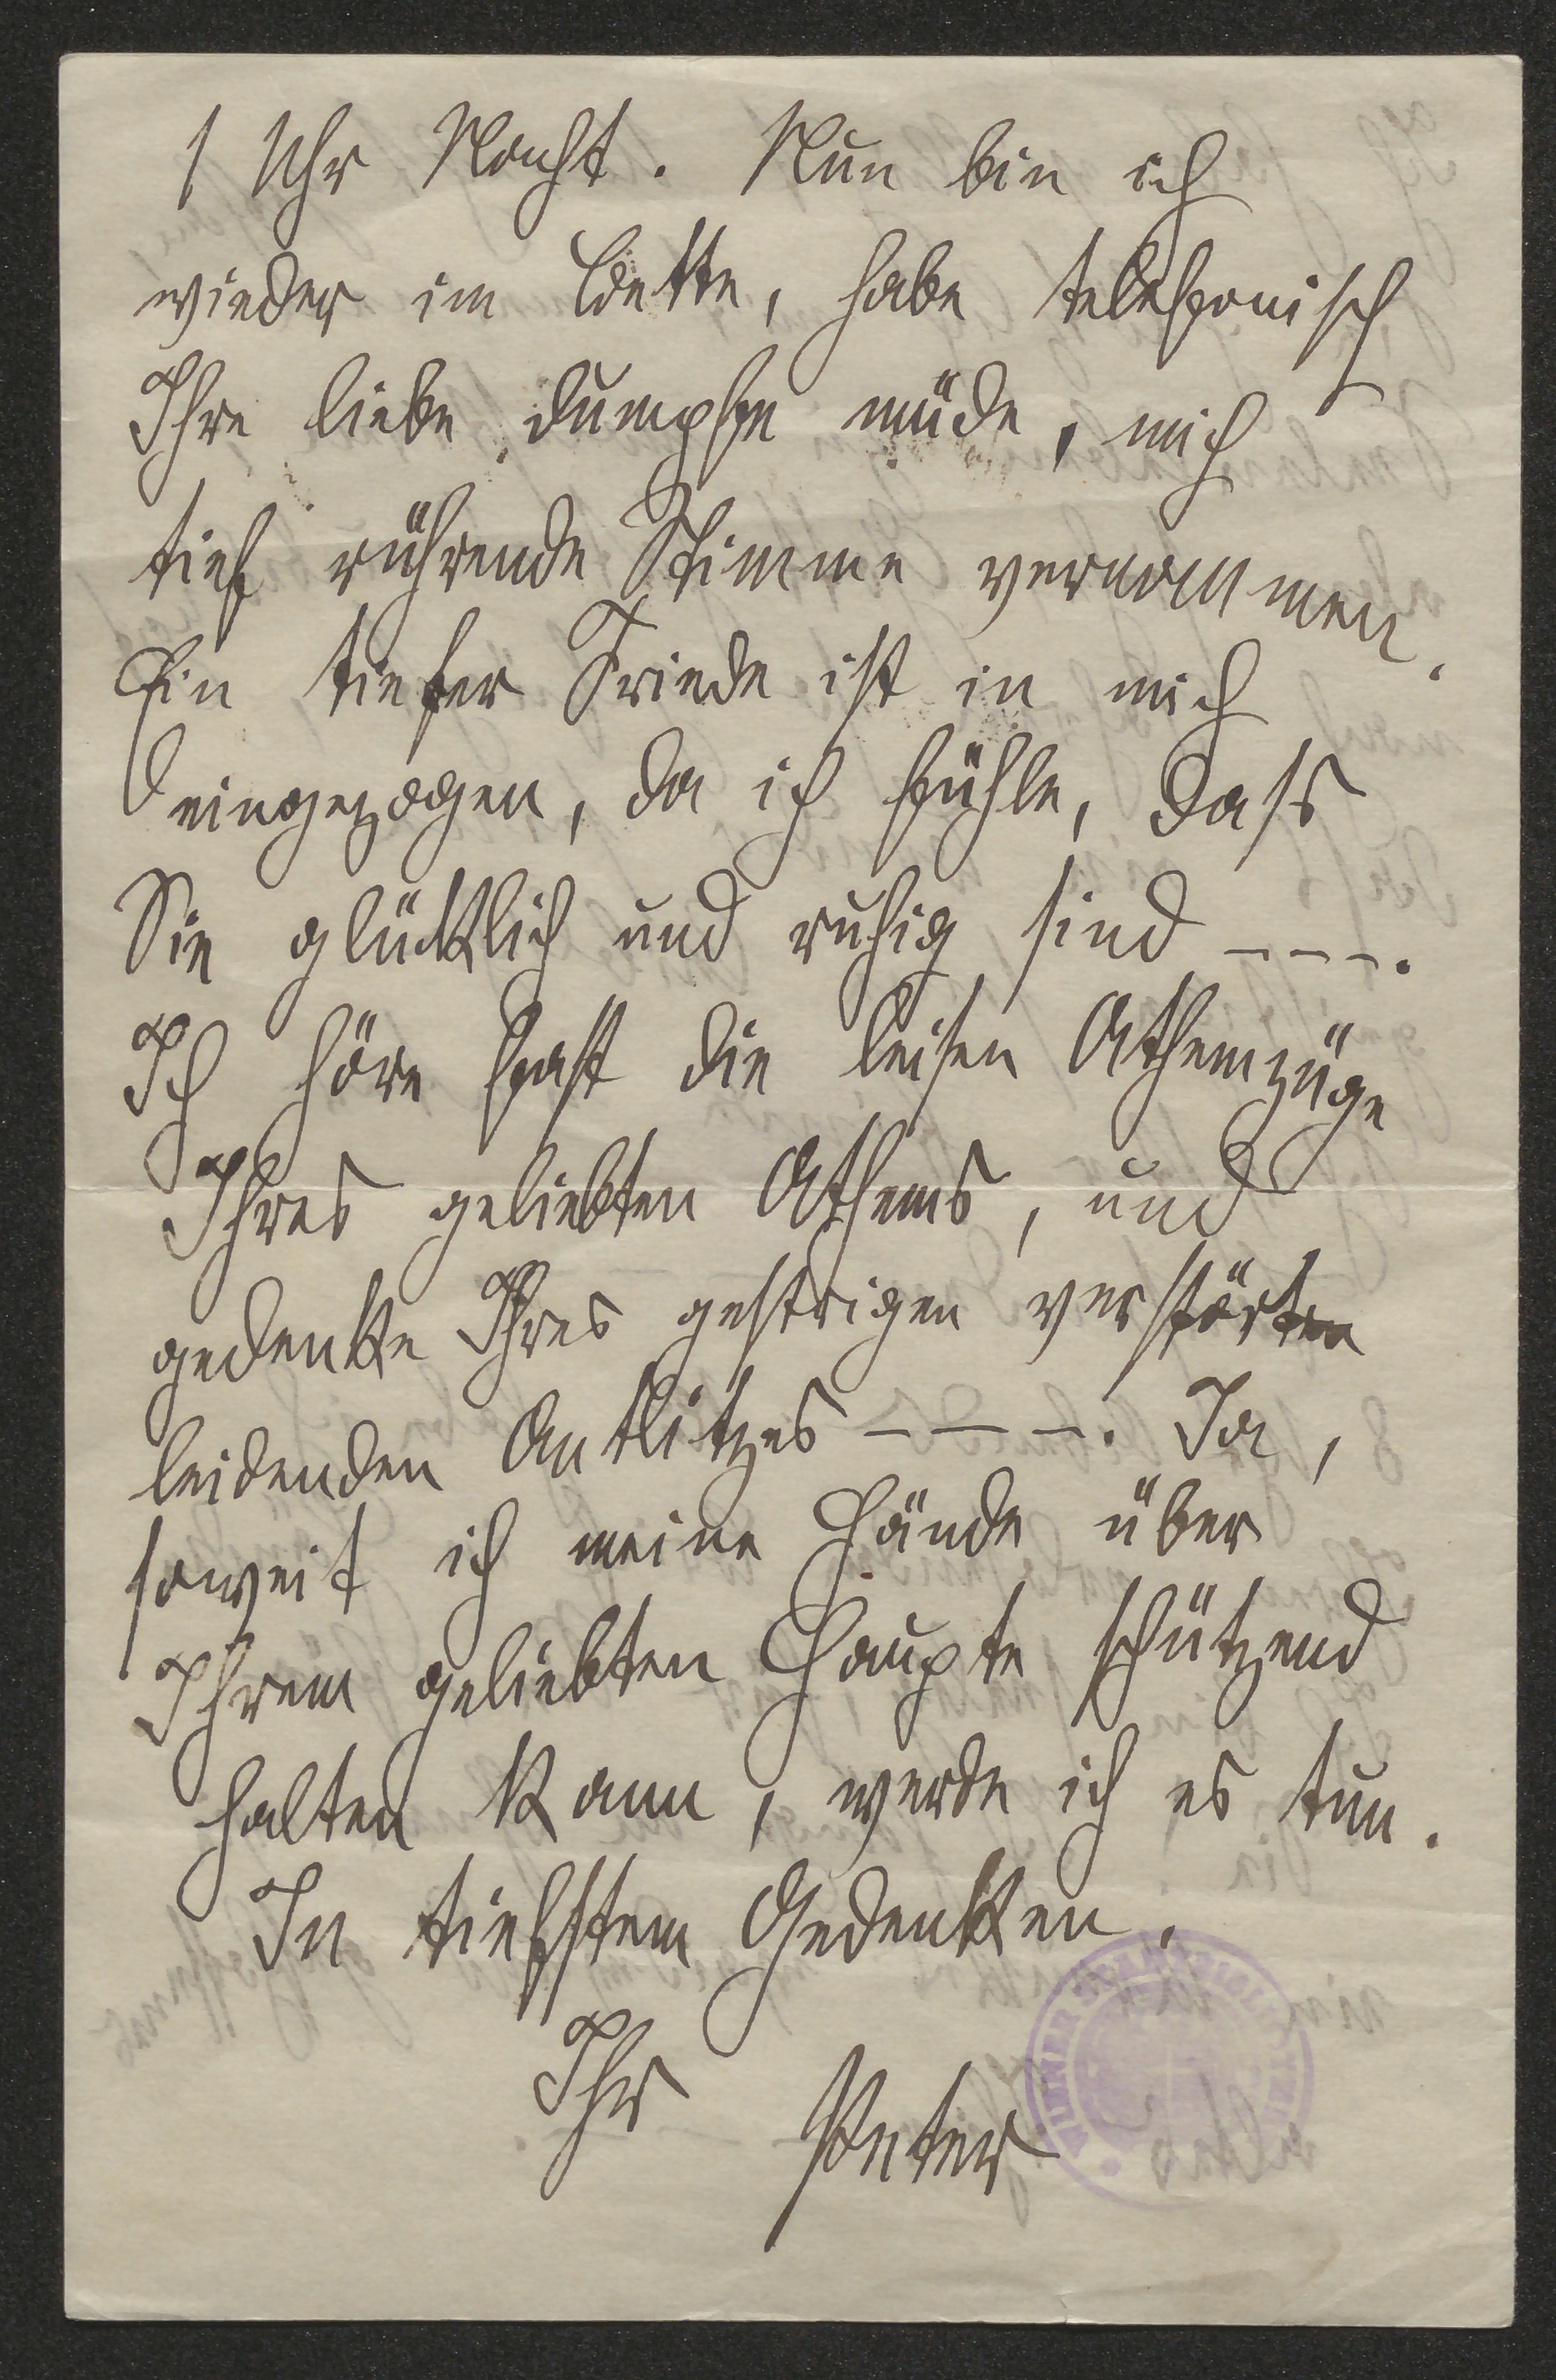 1 Uhr Nacht. Nun bin ich
wieder im Bette, habe telefonisch
Ihre liebe dumpfe müde, mich
tief rührende Stimme vernommen.
Ein tiefer Friede ist in mich
eingezogen, da ich fühle, dass
Sie glücklich und ruhig sind ---.
Ich höre fast die leisen Athemzüge
Ihres geliebten Athems, und
gedenke Ihres gestrigen verstörten
leidenden Antlitzes ---. Ja,
soweit ich meine Hände über
Ihrem geliebten Haupte schützend
halten kann, werde ich es tun.
In tiefstem Gedenken.
Ihr
Peter